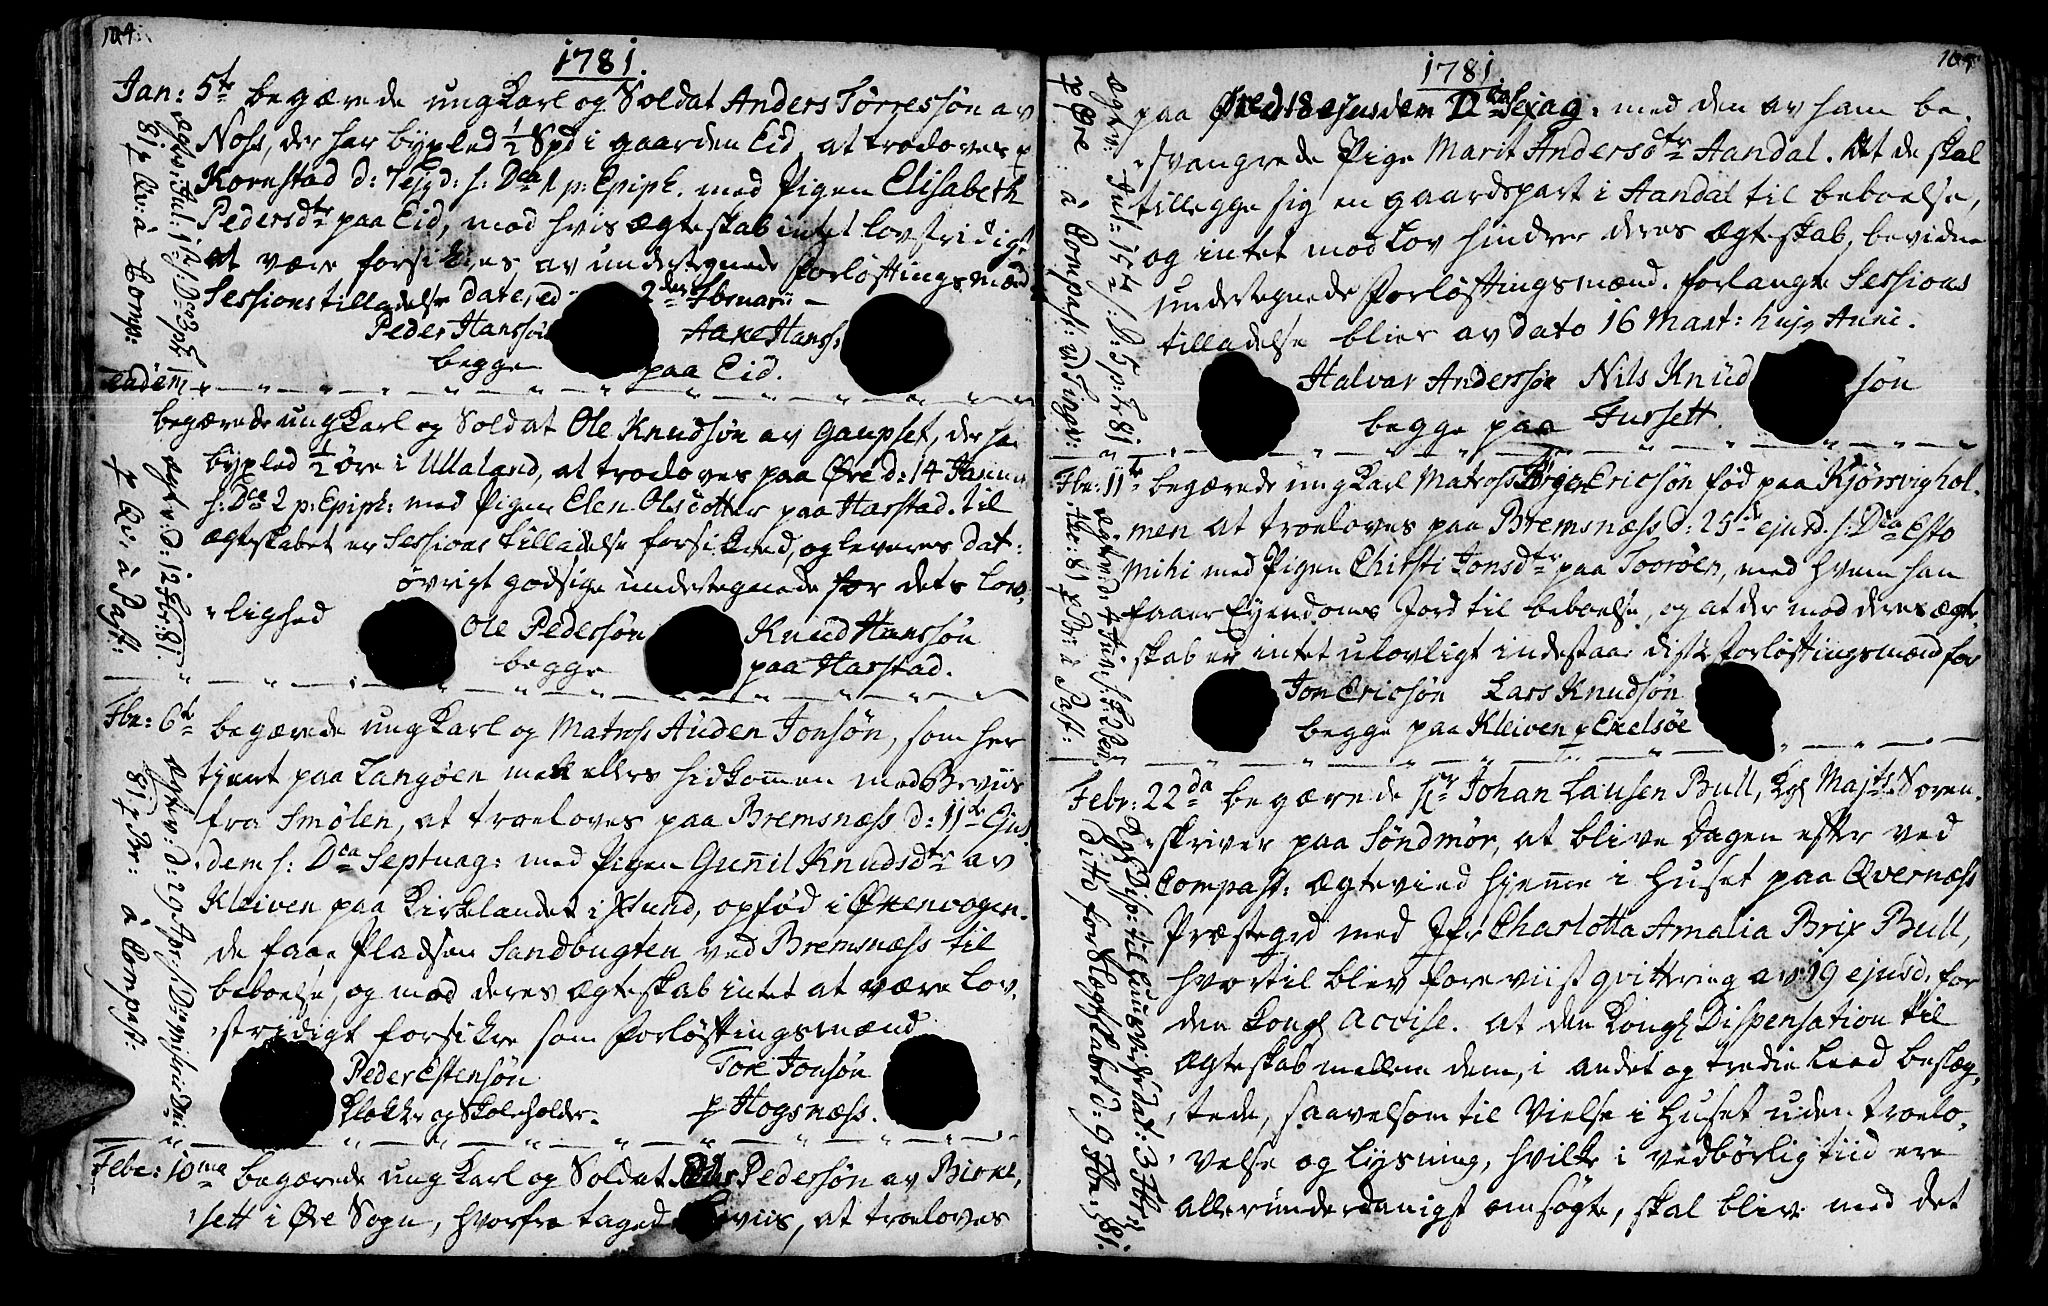 104.
1781.
Jan: 5te begærede ung Karl og Soldat Anders Torressøn av
Noss, der har bypled 1/2 Spd i gaarden Eid, at troeloves p
Kornstad d: 7 ejsd: s: Dca 1 p: Epiph. med Pigen Elisabeth
Pedersdtr paa Eid, mod hvis Ægteskab intet lovstridigt
at være forsikres av undertegnede Forløftingsmænd
Sessions tilladelse datered 2den Februarii
Peder Hanssøn Aane Hanss:
begge paa Eid.
Eadem
begærede ung Karl og Soldat Ole Knudsøn av Gaupset, der har
bypled 1/2 øre i Ullaland, at troeloves paa Øre d: 14 Januarii
s: Dca 2 p: Epiph: med Pigen Elen Olsdotter paa Harstad. til
Ægteskabet er Sessions Tilladelse forsikred, og leveres dat:
øvrigt godsige undertegnede for dets lov-
lighed
Ole Pederssøn Knud Hanssøn
begge paa Harstad.
Fbr: 6te begærede ung Karl og Matros Auden Jonsøn, som her
tjent paa Langøen men ellers hidkommen med Beviis
fra Smølen, at troeloves paa Bremsnæss d: 11te Ejus-
dem s: Dca Septuag: med Pigen Gunnil Knudsdtr av
Kleiven paa Kirkelandet i Xsund, opfød i Ørenvogen.
de faar Pladsen Sandbugten ved Bremsnæss til
beboelse, og mod deres Ægteskab intet at være lov-
stridigt forsikre som Forløftingsmænd
Peder Estensøn Tore Jonsøn
Klokker og Skoleholder. p Hogsnæss.
Febr: 10ma begærede ung Karl og Soldat Pederssøn av Birke-
sett i Øre Sogn, hvorfra taged Beviis, at troeloves
Ægtev: Jul: 1
81 p Qv: à Comp:
Ægtev: d: 12 Fbr: 81.
p Øre à Past:
Ægtev: d: 29 Apr: s: D: Miseric: Dni
81 p Br: à Compast:
105
1781.
paa Øre d: 18 ejusdem Dca Sexag: med den av ham be-
svangrede Pige Marit Andersdtr Aandal. At de skal
tillegge sig en gaardspart i Aandal til beboelse,
og intet mod Lov hindrer deres Ægteskab, bevidne
undertegnede Forløftingsmænd. forlangte Sessions
tilladelse blier av dato 16 Mart: hujg Anni.
Halvar Anderssøn Nils Knud søn
begge paa Fursett.
Fbr: 11te begærede ung Karl Matross Ericsøn fød paa Kjørsvighol-
men at troeloves paa Bremsnæss d: 25de ejusd. s: Dca Esto
mihi med Pigen Chirsti Jonsdtr paa Toorøen, med hvem han
faaer Eyendoms Jord til beboelse, og at der mod deres Ægte-
skab er intet ulovligt indestaar disse Forløftingsmænd for
Jon Ericsøn Lars Knudsøn
begge paa Kleiven p Exelsøe
Febr: 22da begærede Hr Johan Lausen Bull, Kgl Majts Soren-
skriver paa Søndmør, at blive Dagen efter ved
Compast: Ægteviet hjemme i Huset paa Qvernæss
Præstegrd med Jfr Charlotta Amalia Brix Bull,
hvortil blev foreviist qvittering av 19 ejusd. for
den Kongl Accise. At den Kongl Dispensation til
Ægteskab mellem dem, i andet og tredie Leed beslæg-
tede, saavelsom til Vielse i Huset uden troelo-
velse og Lysning, hvilke i vedbørlig tiid ere
allerunderdanigst ansøgte, skal blive med det
Ægtev: Jul: 15de s: D: 5 p: Tr: 81
p Øre à Compast: v Tingv:
Ægtev: d: 4 Jun: s: 2 Pent:
81 p Br: à Past:
Kgl Disp: til Huusvielse dat: 3 Fbr:
Ditto for Slægtskabet d: 9 Fbr: 81.